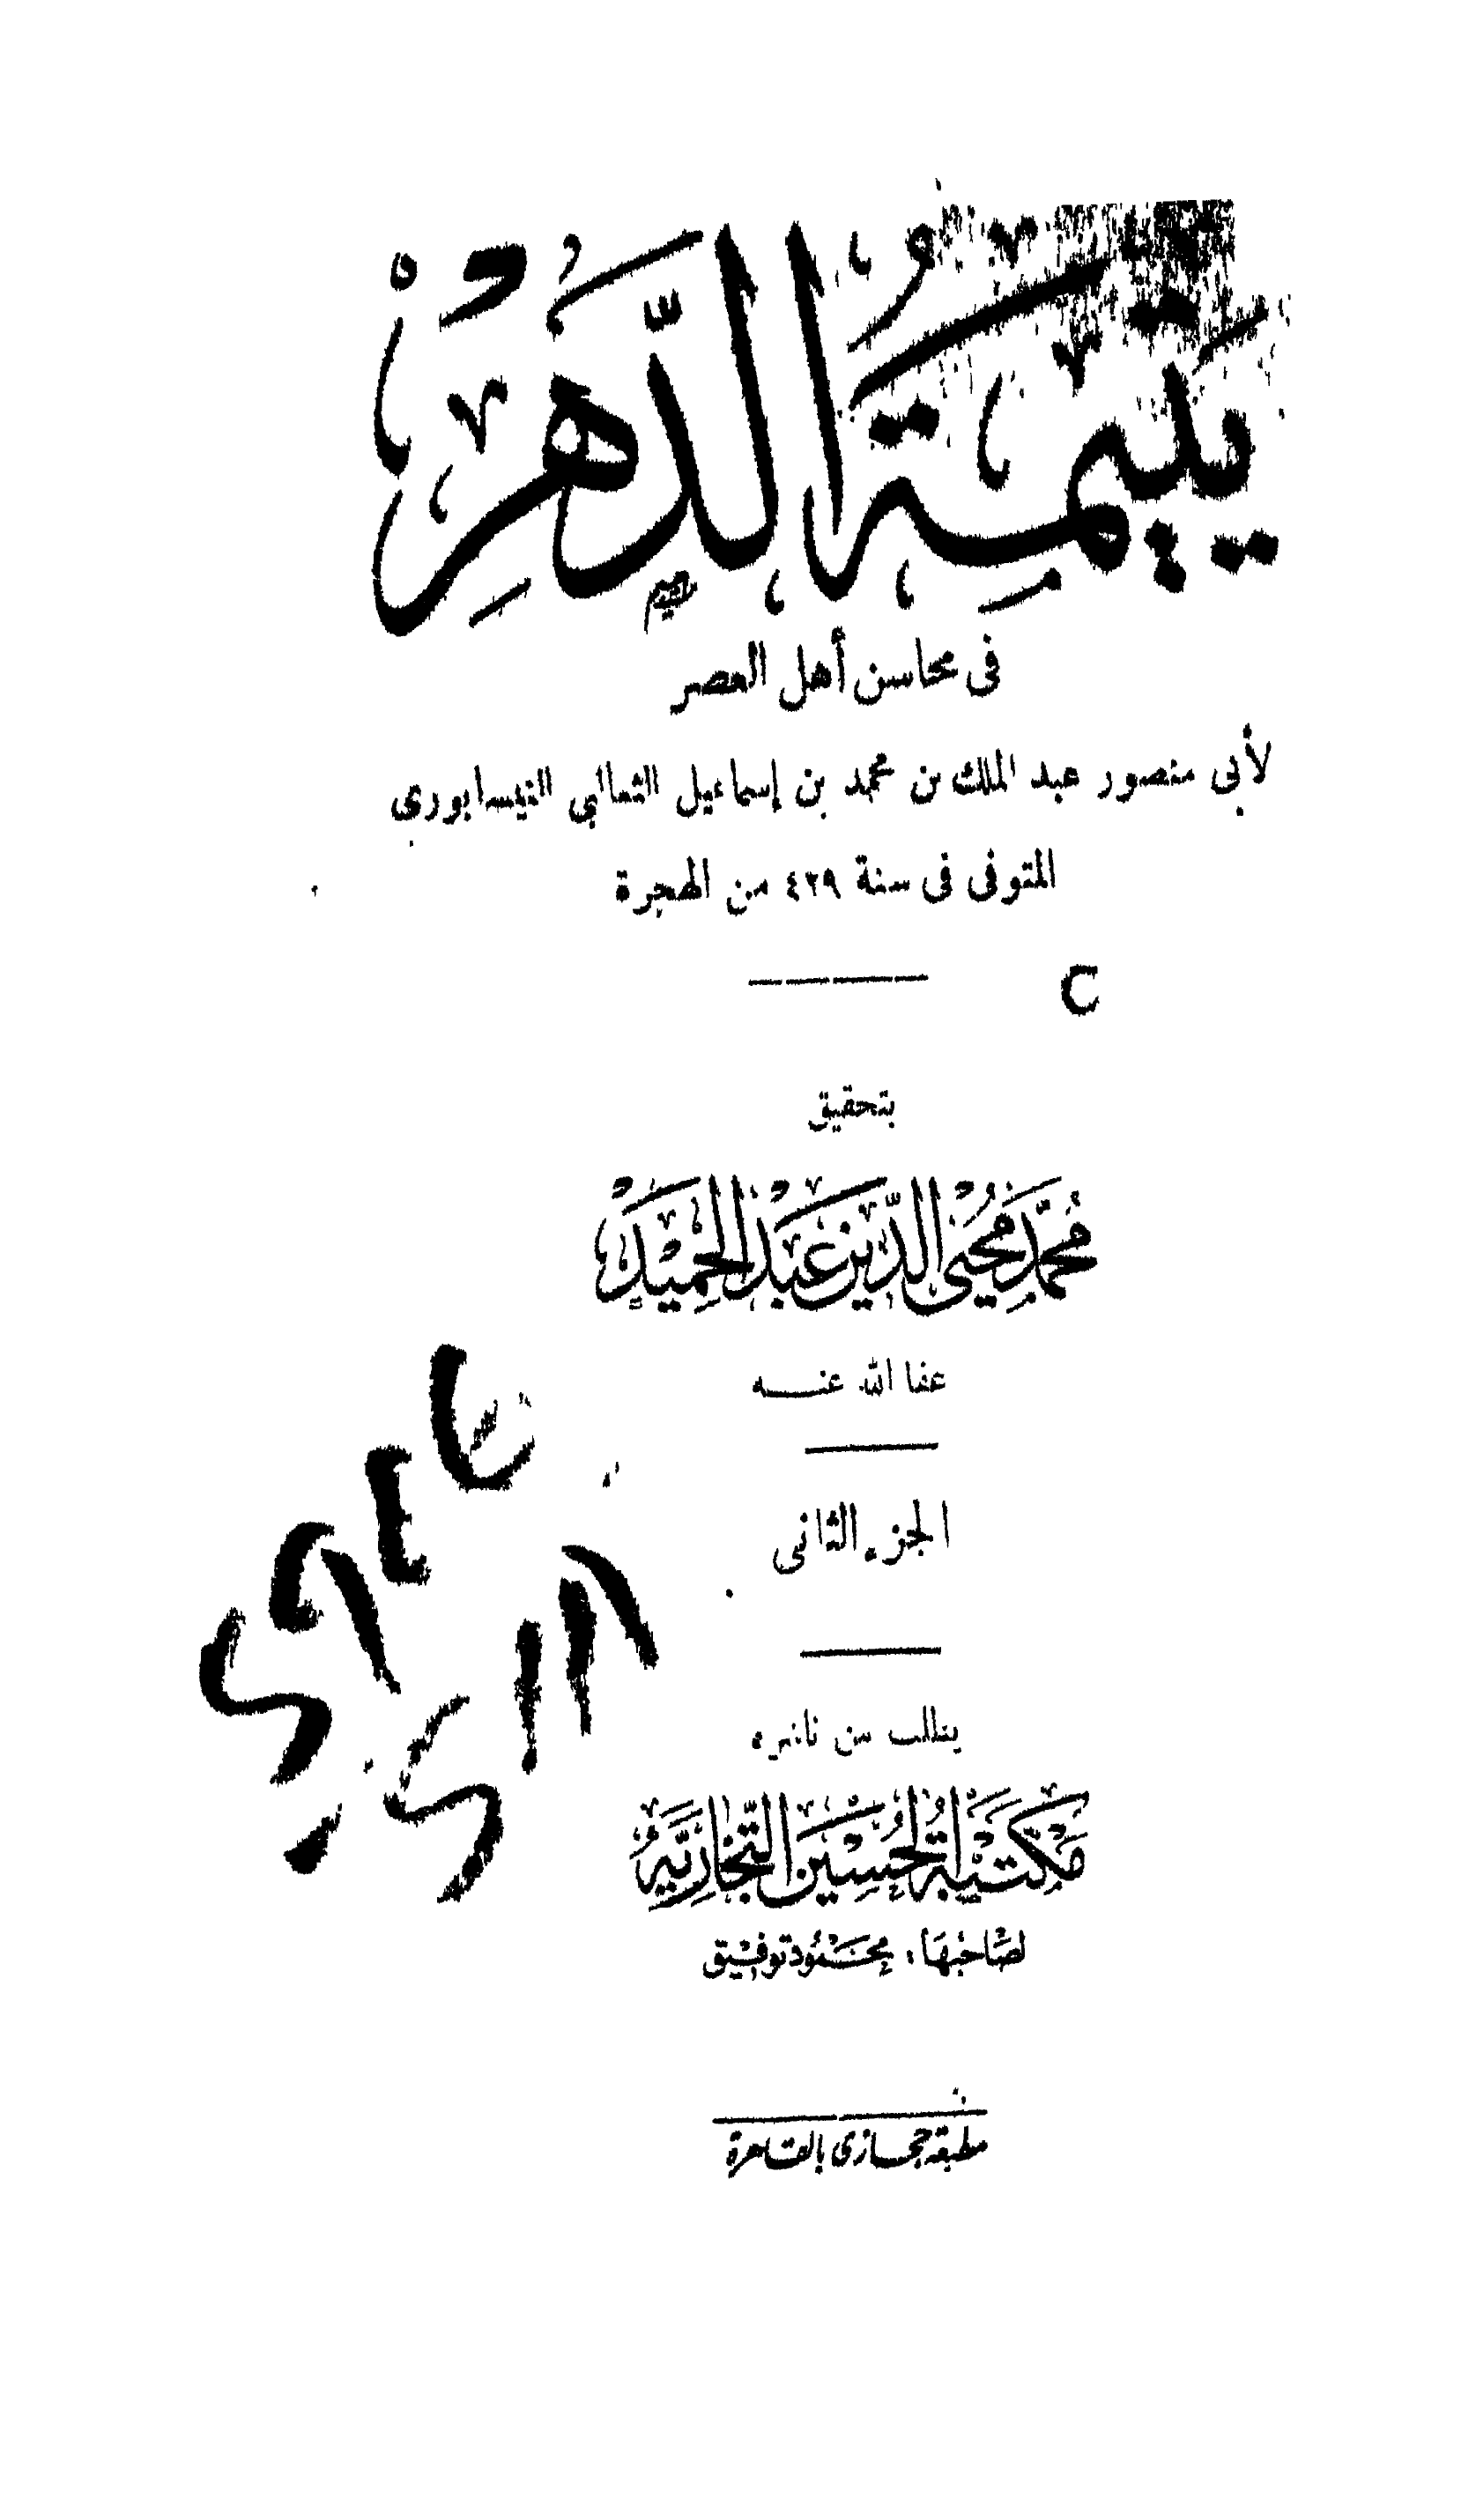 يَتِيمَةُ الدَّهْرِ
فى محاسن أهل العصر
لأبى منصور عبد الملك بن محمد بن إسماعيل الثعالبي النيسابوري
المتوفى فى سنة ٤٢٩ من الهجرة
بتحقيق
مُحَمَّد مُحْيِى الدِّين عَبْد الحَمِيدْ
عفا الله عنه
الجزء الثانى
يطلب من ناشره
مَكتَبَة الحُسَين التِّجَارِيَّة
لصَاحِبهَا: محمود توفيق
مطبعة حجازى بالقاهرة